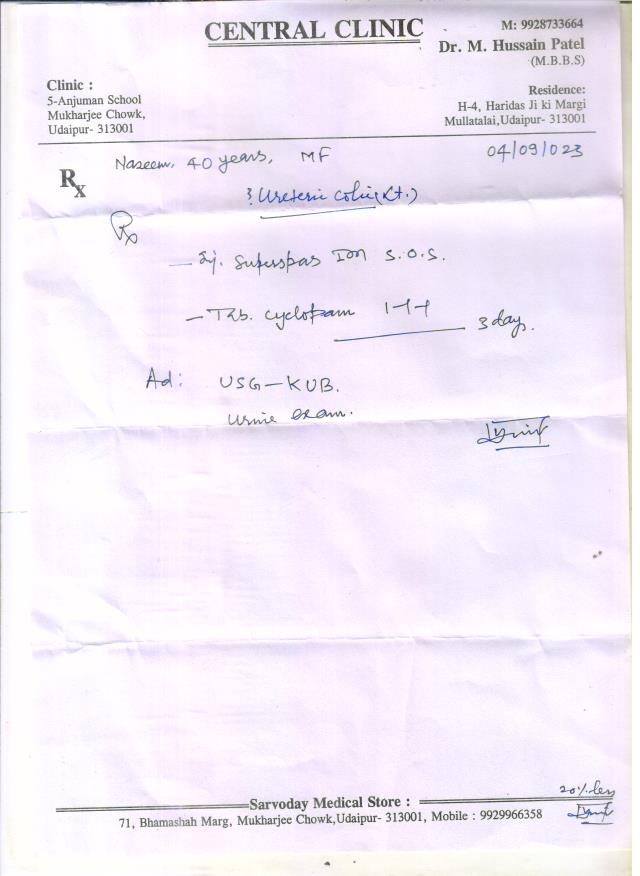 CENTRAL CLINIC
M: 9928733664
Dr. M. Hussain Patel
(M.B.B.S)
Clinic :
5-Anjuman School
Mukharjee Chowk,
Udaipur- 313001
Residence:
H-4, Haridas Ji ki Margi
Mullatalai,Udaipur- 313001
Rx
Naseem, 40 years, MF
04/09/023
? Ureteric colic (Rt.)
Rx
— Inj. Superspas IM S.O.S.
— Tab. cyclopam 1-1-1 3 days.
Ad: USG-KUB.
Urine exam.
20% less
Sarvoday Medical Store :
71, Bhamashah Marg, Mukharjee Chowk,Udaipur- 313001, Mobile : 9929966358